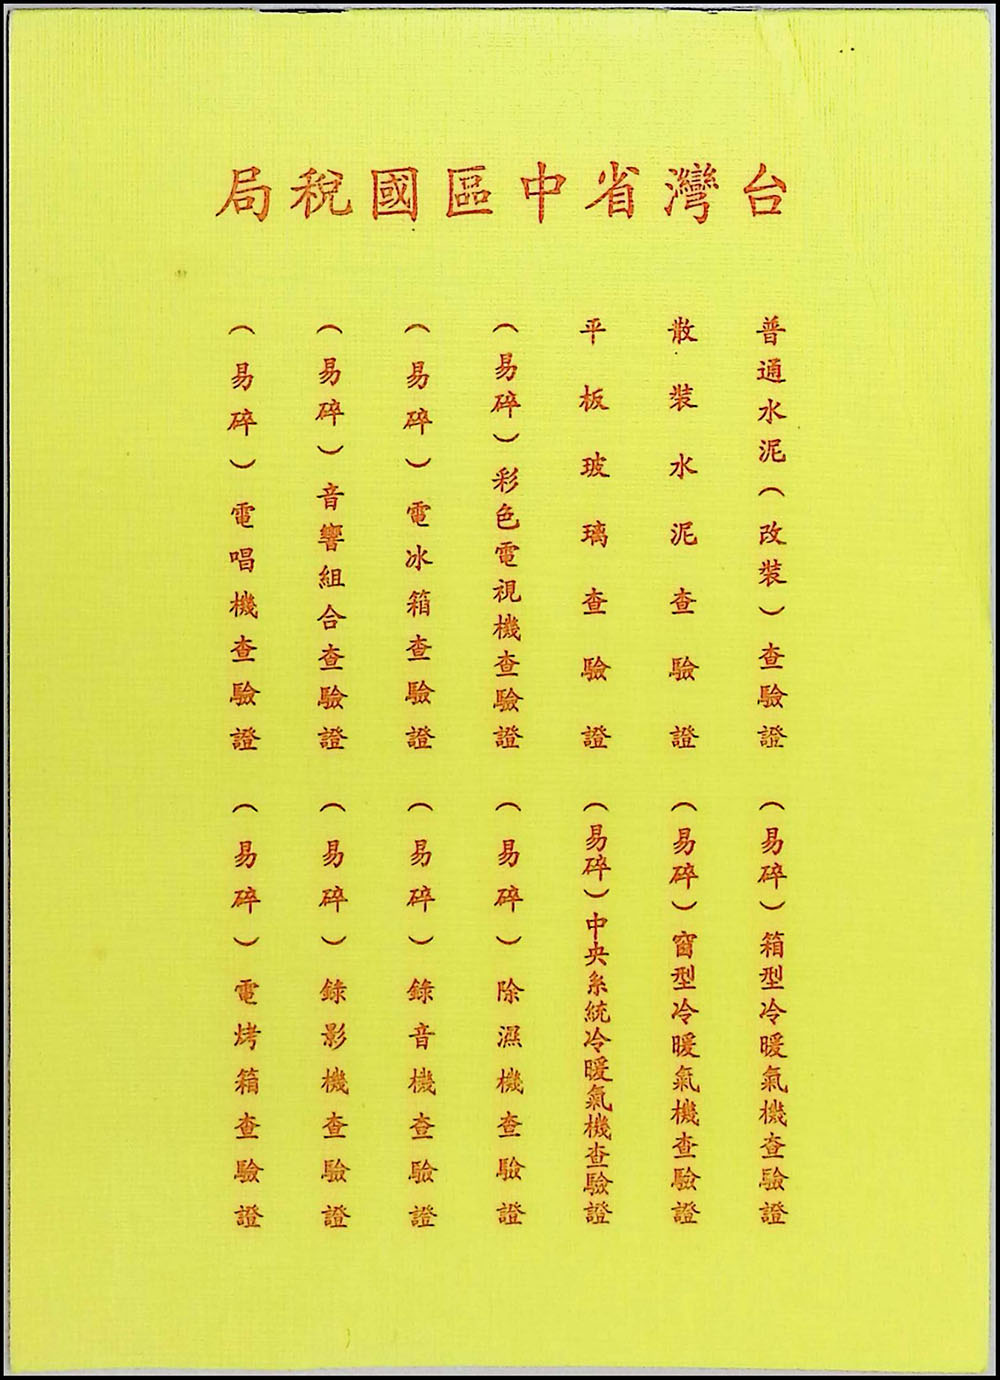 台灣省中區國稅局
普通水泥（改裝）查驗證
散裝水泥查驗證
平板玻璃查驗證
（易碎）彩色電視機查驗證
（易碎）電冰箱查驗證
（易碎）音響組合查驗證
（易碎）電唱機查驗證
（易碎）箱型冷暖氣機查驗證
（易碎）窗型冷暖氣機查驗證
（易碎）中央系統冷暖氣機查驗證
（易碎）除濕機查驗證
（易碎）錄音機查驗證
（易碎）錄影機查驗證
（易碎）電烤箱查驗證